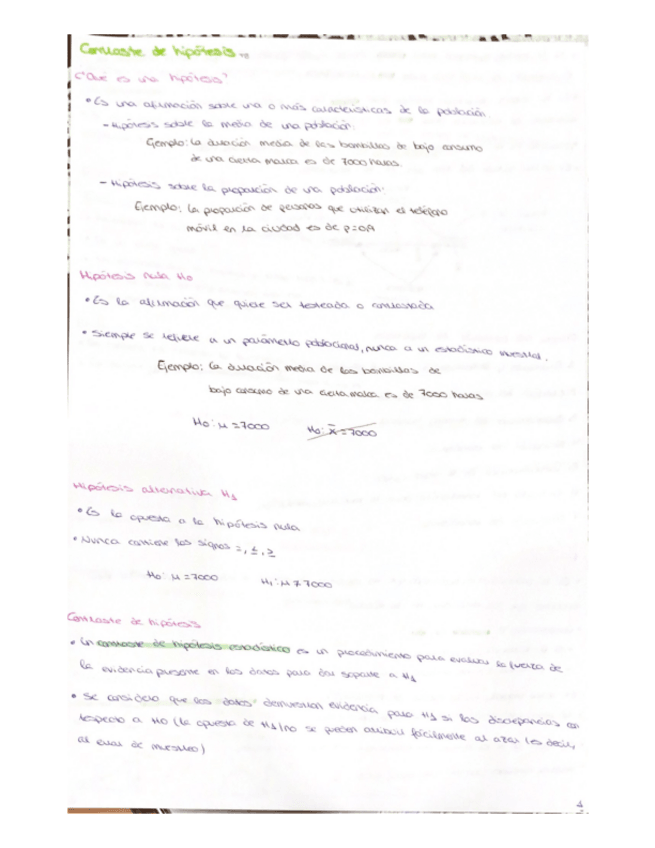 Contraste de hipótesis
¿Qué es una hipótesis?
• Es una afirmación sobre una o más características de la población
- Hipótesis sobre la media de una población:
Ejemplo: La duración media de las bombillas de bajo consumo
de una cierta marca es de 7000 horas.
- Hipótesis sobre la proporción de una población:
Ejemplo: La proporción de personas que utilizan el teléfono
móvil en la ciudad es de p=0,9
Hipótesis nula H0
• Es la afirmación que quiere ser testeada o contrastada
• Siempre se refiere a un parámetro poblacional, nunca a un estadístico muestral.
Ejemplo: La duración media de las bombillas de
bajo consumo de una cierta marca es de 7000 horas
H0: μ = 7000 H0: x̄ = 7000
Hipótesis alternativa H1
• Es la opuesta a la hipótesis nula
• Nunca contiene los signos =, ≤, ≥
H0: μ = 7000 H1: μ ≠ 7000
Contraste de hipótesis
• Un contraste de hipótesis estadístico es un procedimiento para evaluar la fuerza de
la evidencia presente en los datos para dar soporte a H1
• Se considera que los datos demuestran evidencia para H1 si las discrepancias con
respecto a H0 (la opuesta de H1) no se pueden atribuir fácilmente al azar (es decir,
al azar de muestreo)
4